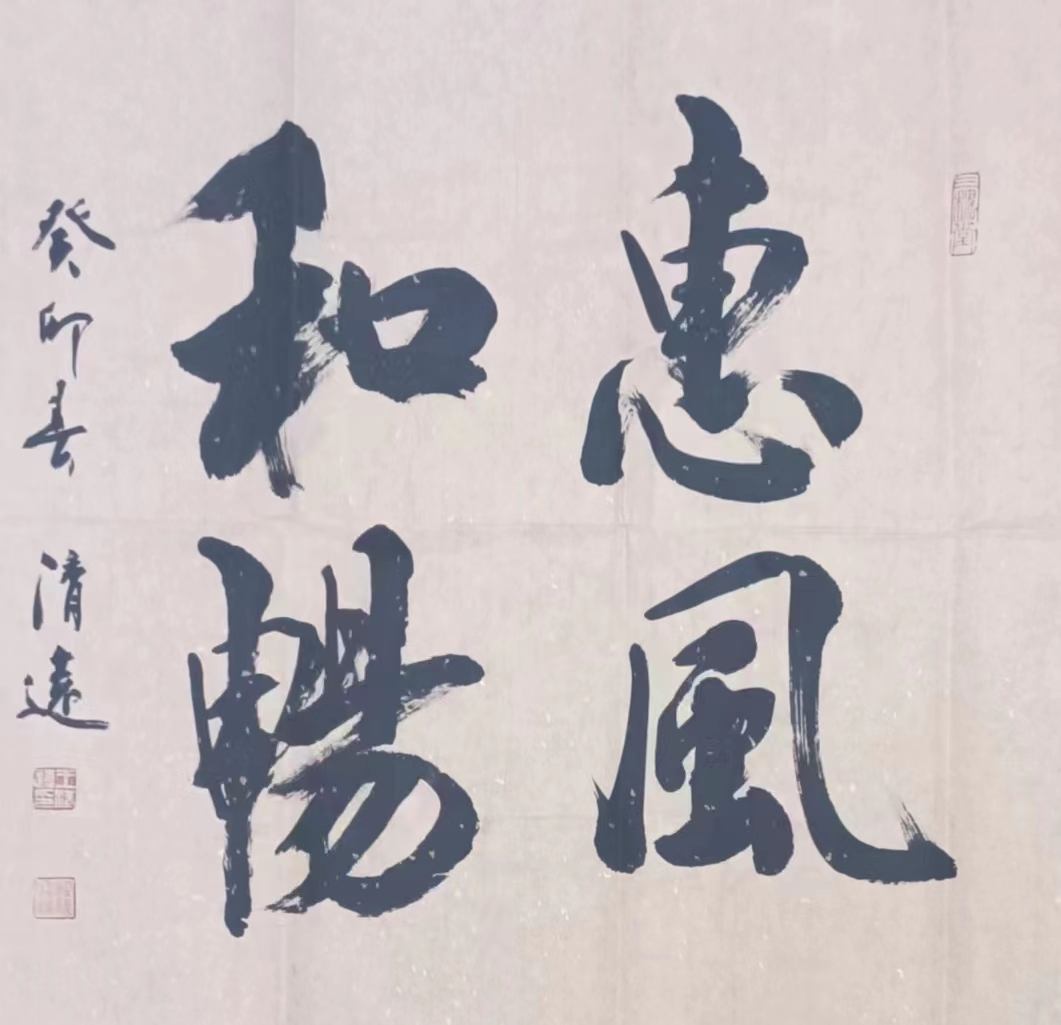 惠風
和暢
癸卯春
清遠